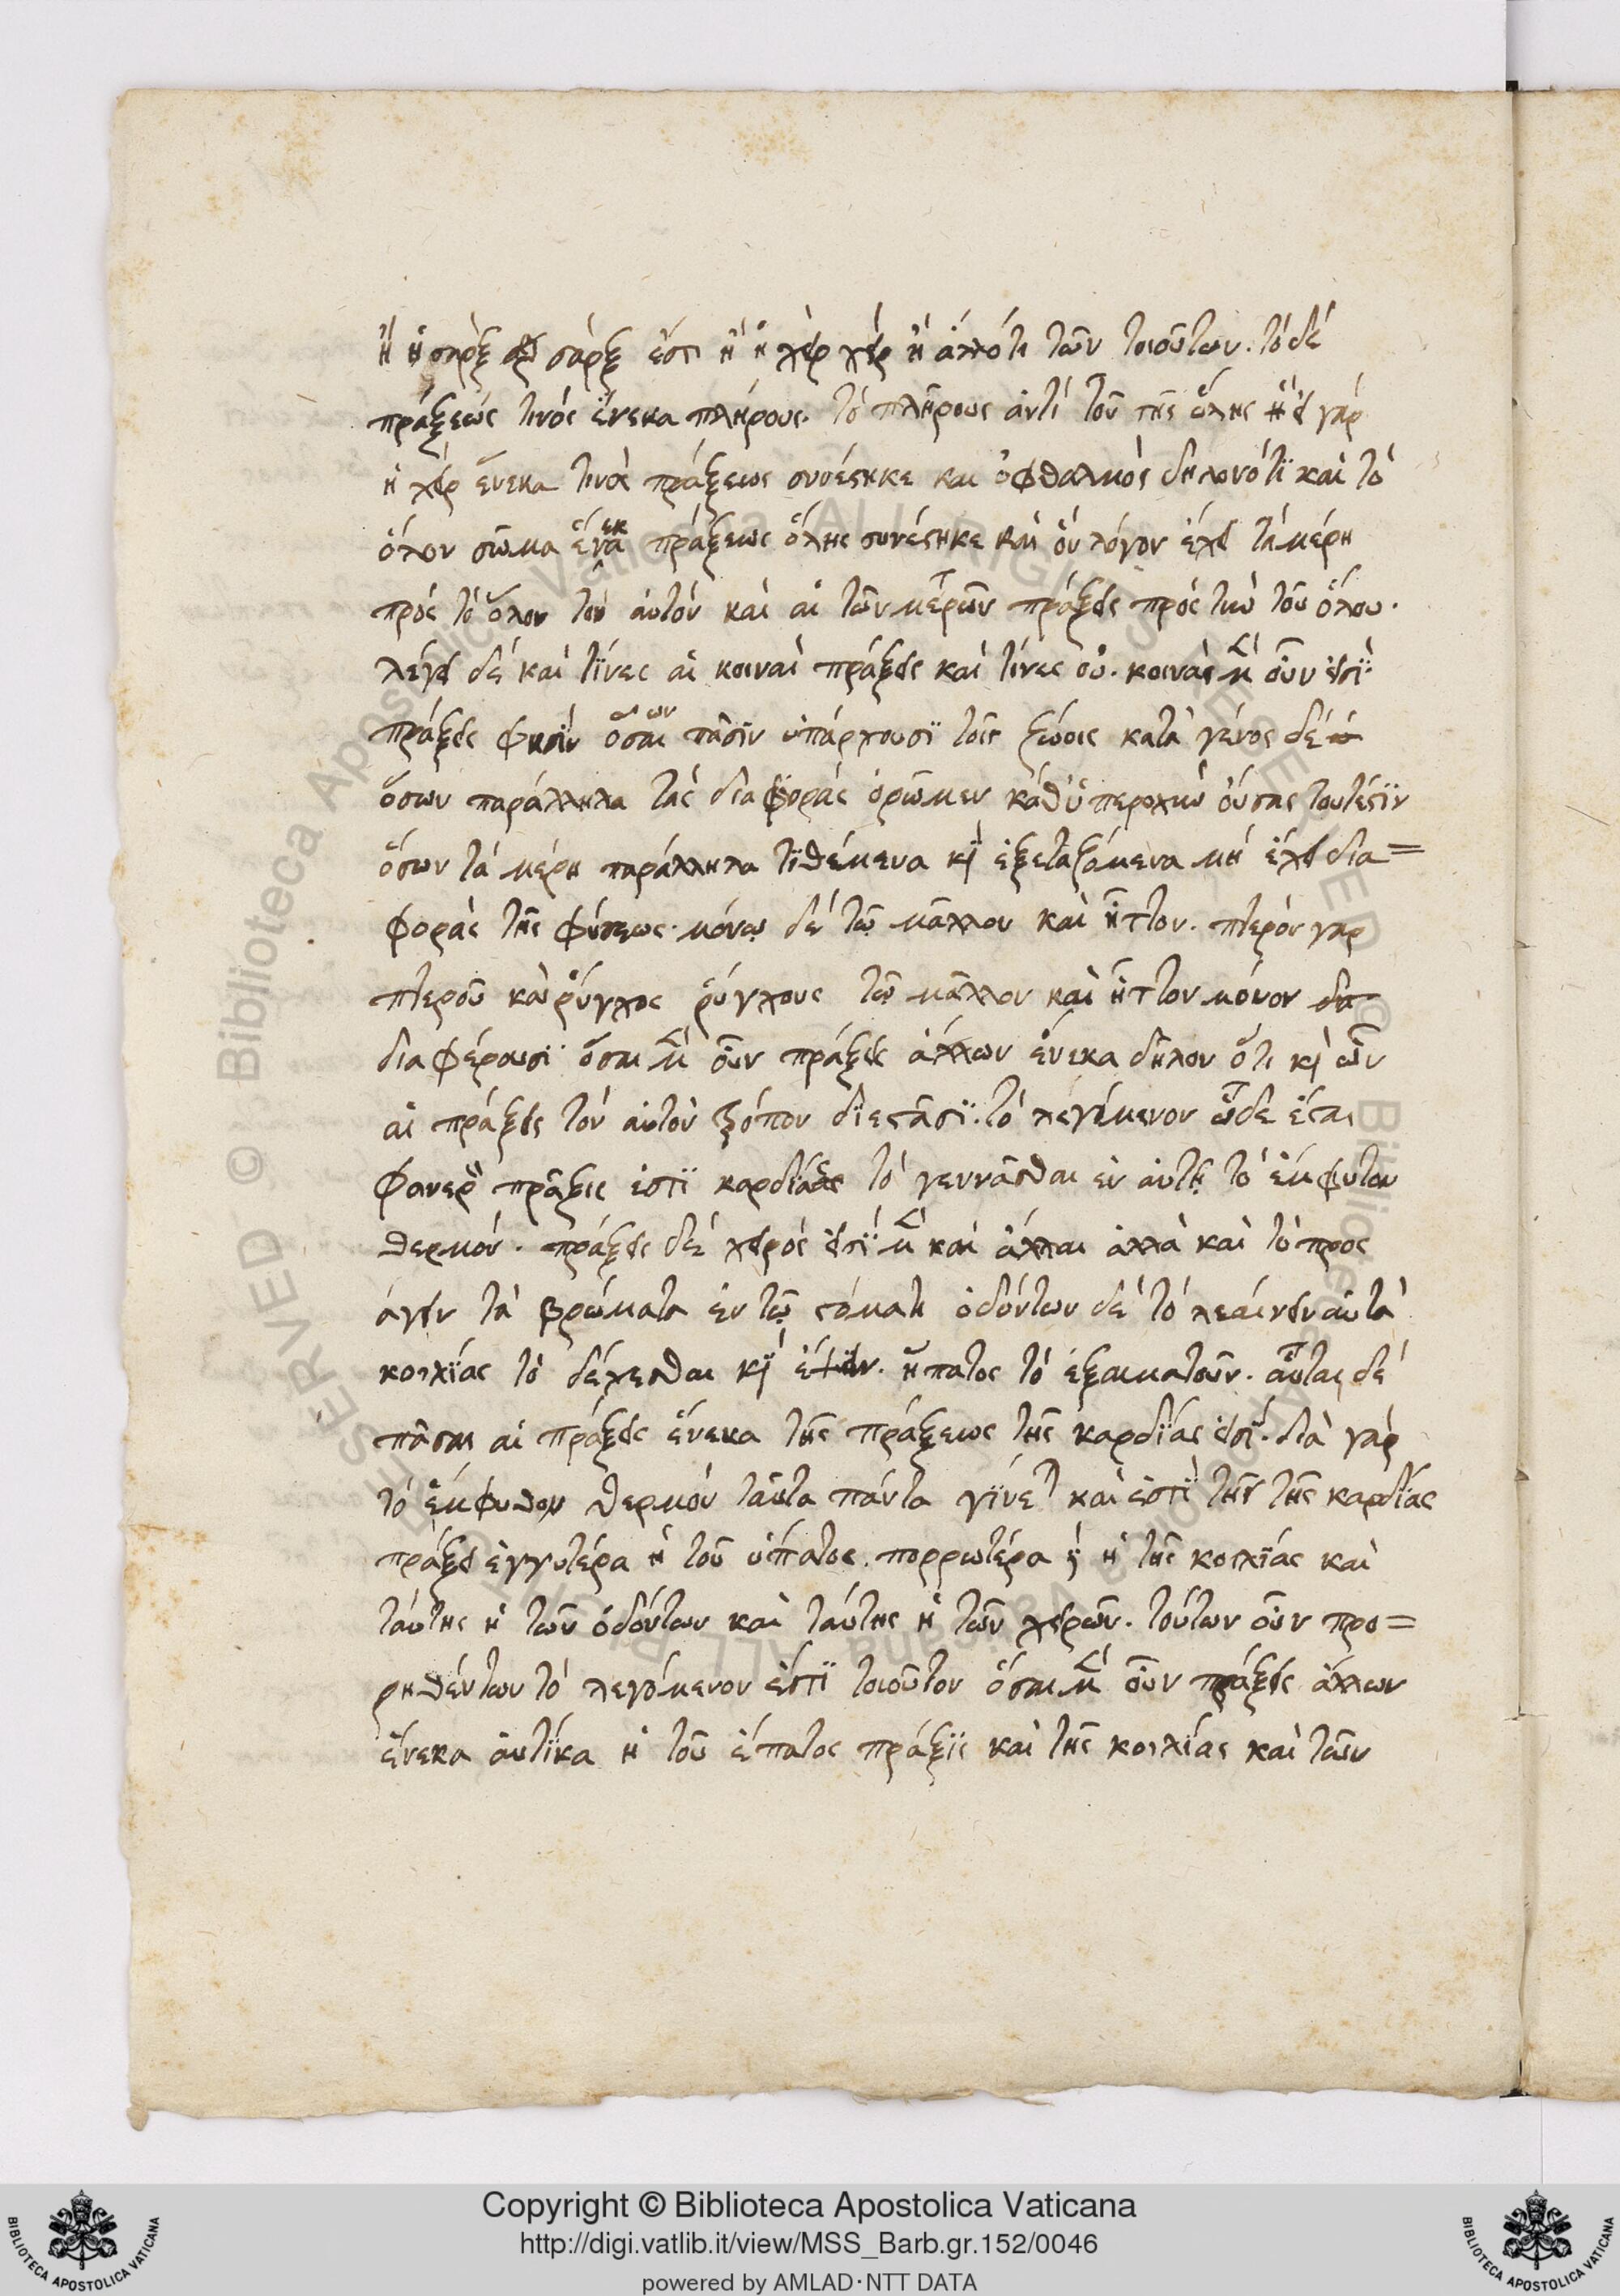 ἢ ἡ σὰρξ σάρξ ἐστι ἢ ἡ χεὶρ χεὶρ ἢ ἄλλό τι τῶν τοιούτων. τὸ δὲ
πράξεώς τινός ἕνεκα πλήρους. τὸ πλήρους ἀντὶ τοῦ τῆς ὅλης ἢ εἰ γὰρ
ἡ χεὶρ ἕνεκα τινὸς πράξεως συνέστηκε και ὀφθαλμὸς δηλονότϊ καὶ τὸ
ὅλον σῶμα ἕνεκα πράξεως ὅλης συνέστηκε καὶ ὃν λόγον ἔχει τὰ μέρη
πρὸς τὸ ὅλον τὸν αὐτὸν καὶ αἱ τῶν μερῶν πράξεις πρὸς τὴν τοῦ ὅλου.
λέγει δὲ καὶ τίνες αἱ κοιναὶ πράξεις καὶ τίνες οὔ. κοινὰς μὲν οὖν εἰσὶ
πράξεις φησὶν ὅσαι πᾶσϊν ὑπάρχουσϊ τοῖς ζώοις κατὰ γένος δὲ
ὅσων παράλληλα τὰς διαφορὰς ὁρῶμεν καθ' ὑπεροχὴν οὔσας τουτέστϊν
ὅσων τὰ μέρη παράλληλα τϊθέμενα κὶ ἐξεταζόμενα μὴ ἔχει δια=
φορὰς τῆς φύσεως. μόνῳ δὲ τῷ μᾶλλον καὶ ἧττον. πτερὸν γαρ
πτεροῦ καὶ ῥύγχος ῥύγχους τῷ μᾶλλον καὶ ἧττον μόνον
διαφέρουσϊ ὅσαι μὲν οὖν πράξεις ἄλλων ἕνεκα δῆλον ὅτι κὶ ὧν
αἱ πράξεις τὸν αὐτὸν τρόπον δϊεστᾶσϊ. τὸ λεγόμενον ὧδε ἔσται
φανερὸν πρᾶξις ἐστϊ καρδϊας τὸ γεννᾶσθαι ἐν αὐτῇ τὸ ἔμφυτον
θερμόν. πράξεις δὲ χειρός εἰσϊ μὲν καὶ ἄλλαι ἀλλὰ καὶ τὸ προς
άγειν τὰ βρώματα ἐν τῷ στόματι ὀδόντων δὲ τὸ λεαίνειν αὐτὰ
κοιλϊας τὸ δέχεσθαι κὶ ἕψειν. ἥπατος τὸ ἐξαιματοῦν. αὗται δὲ
πᾶσαι αἱ πράξεις ἕνεκα τῆς πράξεως τῆς καρδϊας εἰσϊ. διὰ γὰρ
τὸ ἔμφυτον θερμὸν ταῦτα πάντα γϊνεται καὶ ἐστϊ τῆς τῆς καρδϊας
πράξει ἐγγυτέρα ἡ τοῦ ὕπατος. πορρωτέρα δὲ ἡ τῆς κοιλϊας καὶ
ταύτης ἡ τῶν ὀδόντων καὶ ταύτης ἡ τῶν χειρῶν. τούτων οὖν προ=
ρηθέντων τὸ λεγόμενον ἐστϊ τοιοῦτον ὅσαι μὲν οὖν πράξεις ἄλλων
ἕνεκα αὐτίκα ἡ τοῦ ἔπατος πρᾶξϊς καὶ τῆς κοιλϊας καὶ τῶν
Copyright © Biblioteca Apostolica Vaticana
http://digi.vatlib.it/view/MSS_Barb.gr.152/0046
powered by AMLAD·NTT DATA